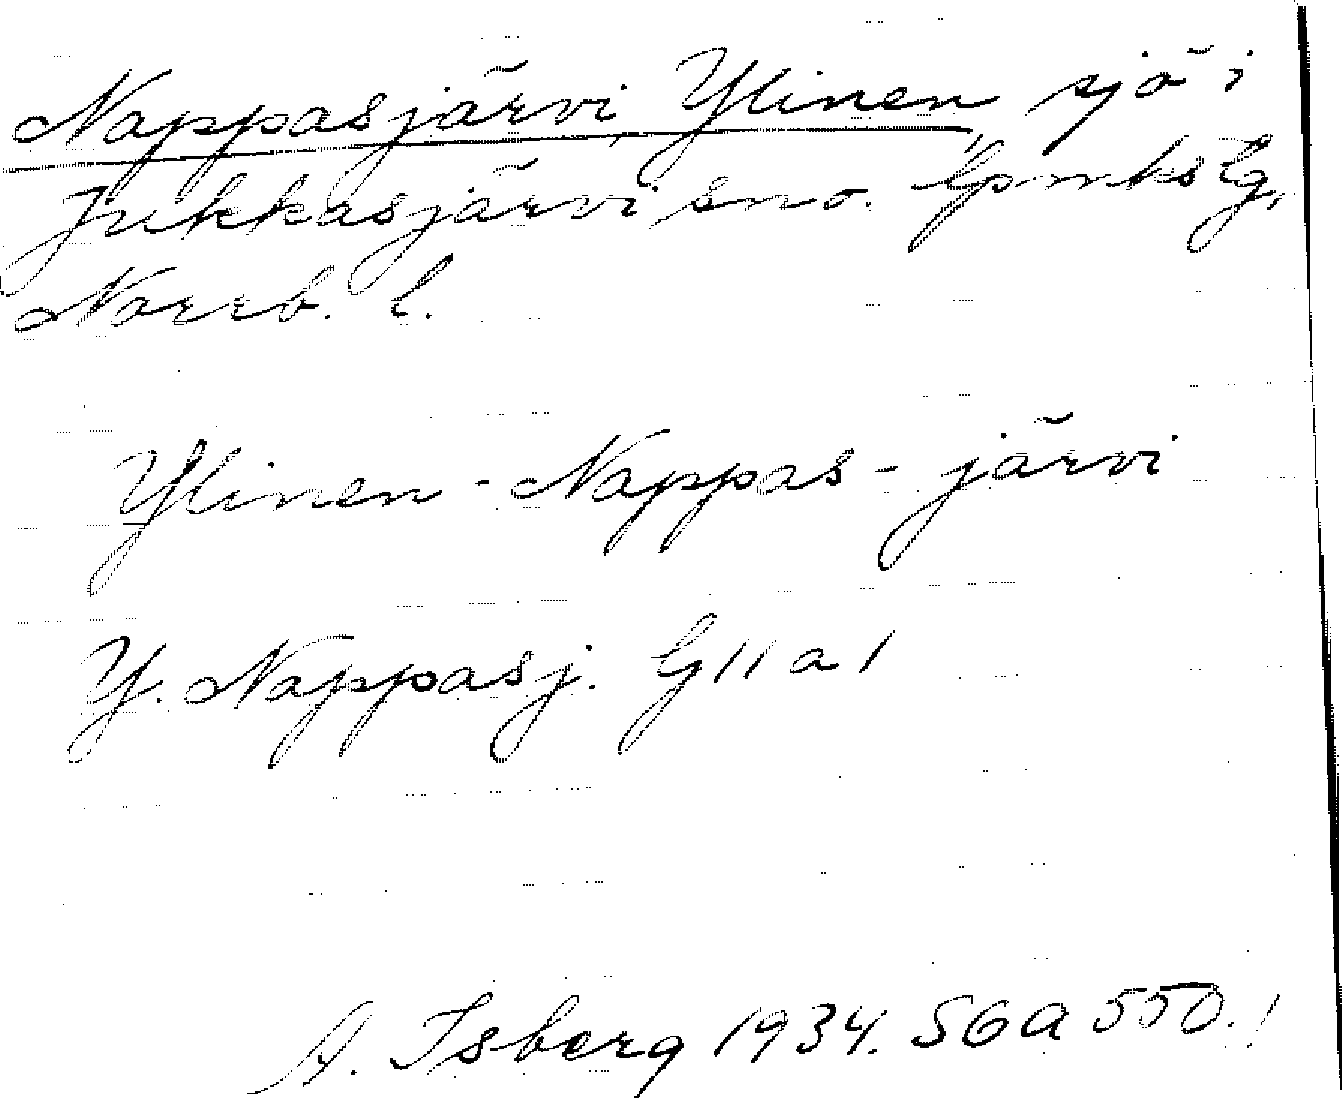 Nappasjärvi, Ylinen, sjö i
Jukkasjärvi sno. Lpmks lg,
Norrb. l.
Ylinen-Nappas-järvi
Y. Nappasj. G11a1
A. Isberg 1934. SGA 550.!